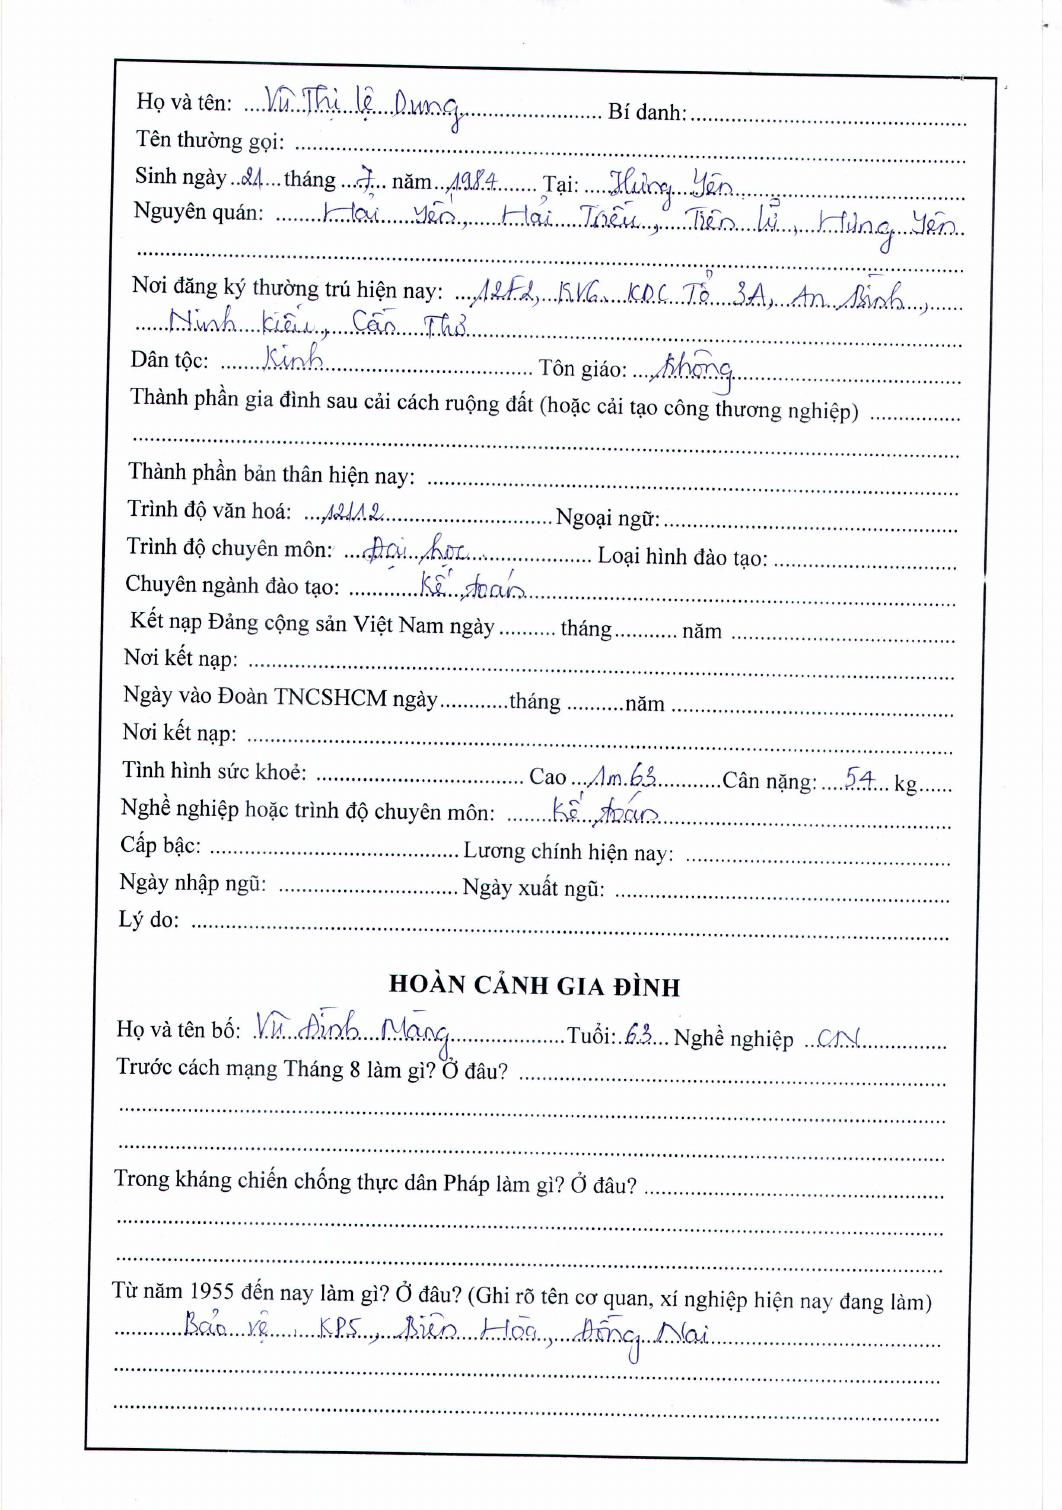 Họ và tên: Vũ Thị Lệ Dung Bí danh:
Tên thường gọi:
Sinh ngày 21 tháng 7 năm 1984 Tại: Hưng Yên
Nguyên quán: Hải Yến, Hải Triều, Tiên Lữ, Hưng Yên
Nơi đăng ký thường trú hiện nay: 12F2, KVG KDC Tổ 3A, An Bình,
Ninh Kiều, Cần Thơ
Dân tộc: Kinh Tôn giáo: không
Thành phần gia đình sau cải cách ruộng đất (hoặc cải tạo công thương nghiệp)
Thành phần bản thân hiện nay:
Trình độ văn hoá: 12/12 Ngoại ngữ:
Trình độ chuyên môn: Đại học Loại hình đào tạo:
Chuyên ngành đào tạo: Kế toán
Kết nạp Đảng cộng sản Việt Nam ngày tháng năm
Nơi kết nạp:
Ngày vào Đoàn TNCSHCM ngày tháng năm
Nơi kết nạp:
Tình hình sức khoẻ: Cao 1m63 Cân nặng: 54 kg
Nghề nghiệp hoặc trình độ chuyên môn: Kế toán
Cấp bậc: Lương chính hiện nay:
Ngày nhập ngũ: Ngày xuất ngũ:
Lý do:
HOÀN CẢNH GIA ĐÌNH
Họ và tên bố: Vũ Đình Măng Tuổi: 63 Nghề nghiệp CN
Trước cách mạng Tháng 8 làm gì? Ở đâu?
Trong kháng chiến chống thực dân Pháp làm gì? Ở đâu?
Từ năm 1955 đến nay làm gì? Ở đâu? (Ghi rõ tên cơ quan, xí nghiệp hiện nay đang làm)
Bảo vệ, KP5, Biên Hòa, Đồng Nai